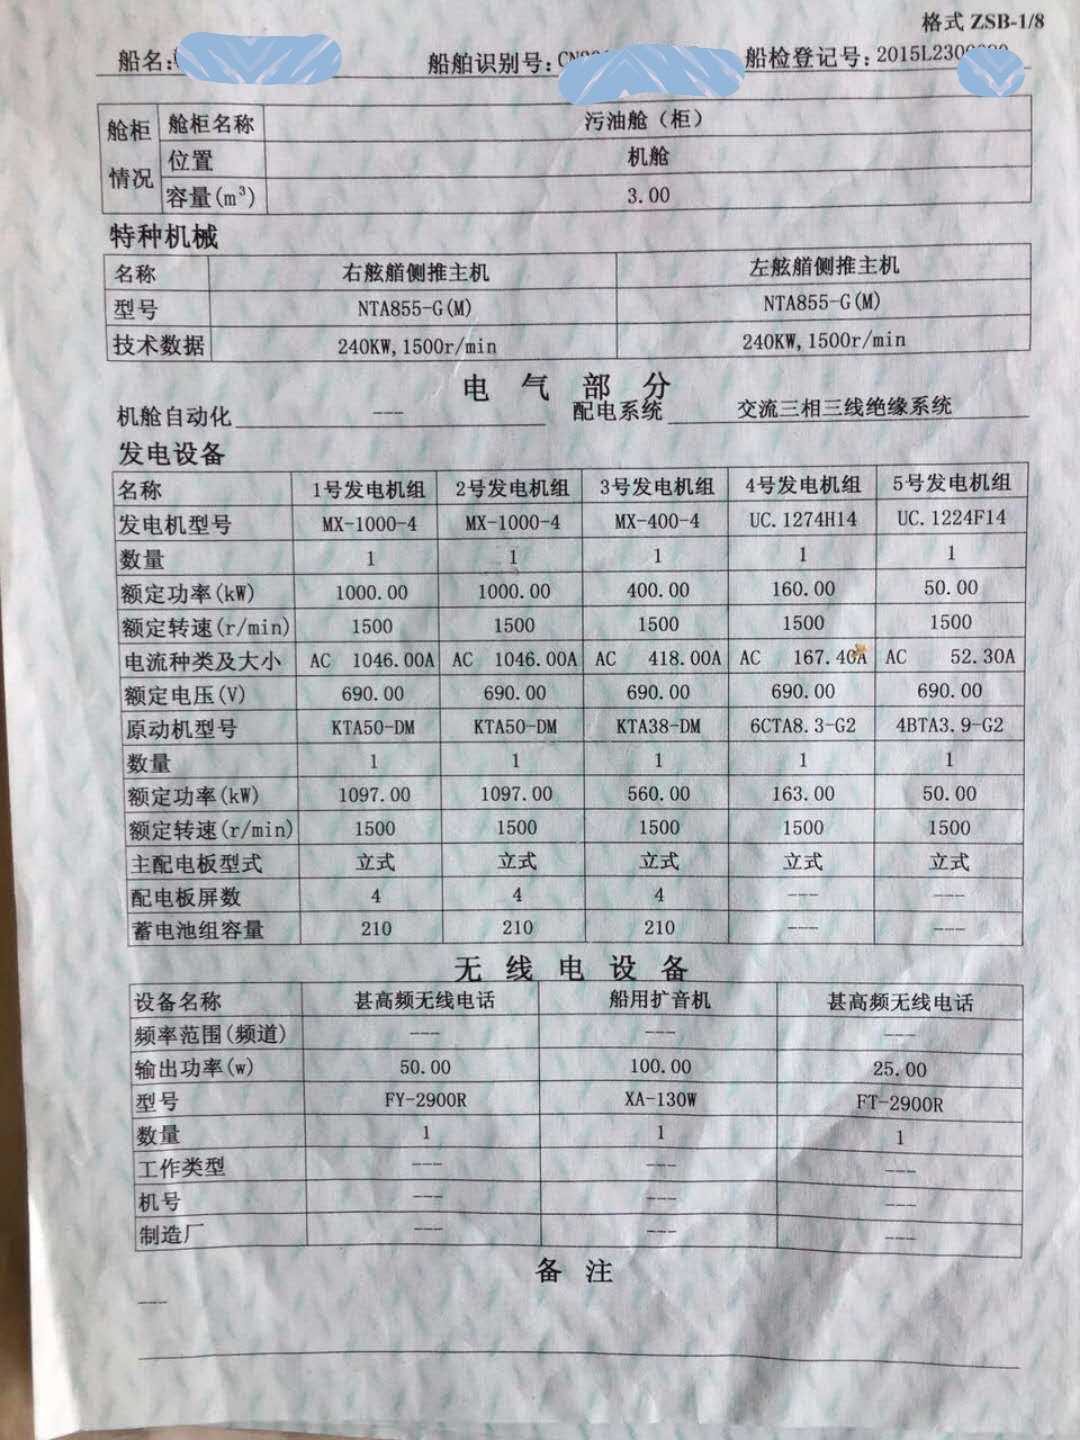 格式 ZSB-1/8
船名: 船舶识别号: 船检登记号: 2015L2300
舱柜情况 舱柜名称 污油舱（柜）
位置 机舱
容量(m³) 3.00
特种机械
名称 右舷艏侧推主机 左舷艏侧推主机
型号 NTA855-G(M) NTA855-G(M)
技术数据 240KW,1500r/min 240KW,1500r/min
电 气 部 分
机舱自动化 --- 配电系统 交流三相三线绝缘系统
发电设备
名称 1号发电机组 2号发电机组 3号发电机组 4号发电机组 5号发电机组
发电机型号 MX-1000-4 MX-1000-4 MX-400-4 UC.1274H14 UC.1224F14
数量 1 1 1 1 1
额定功率(kW) 1000.00 1000.00 400.00 160.00 50.00
额定转速(r/min) 1500 1500 1500 1500 1500
电流种类及大小 AC 1046.00A AC 1046.00A AC 418.00A AC 167.40A AC 52.30A
额定电压(V) 690.00 690.00 690.00 690.00 690.00
原动机型号 KTA50-DM KTA50-DM KTA38-DM 6CTA8.3-G2 4BTA3.9-G2
数量 1 1 1 1 1
额定功率(kW) 1097.00 1097.00 560.00 163.00 50.00
额定转速(r/min) 1500 1500 1500 1500 1500
主配电板型式 立式 立式 立式 立式 立式
配电板屏数 4 4 4 --- ---
蓄电池组容量 210 210 210 --- ---
无 线 电 设 备
设备名称 甚高频无线电话 船用扩音机 甚高频无线电话
频率范围(频道) --- --- ---
输出功率(w) 50.00 100.00 25.00
型号 FY-2900R XA-130W FT-2900R
数量 1 1 1
工作类型 --- --- ---
机号 --- --- ---
制造厂 --- --- ---
备 注
---